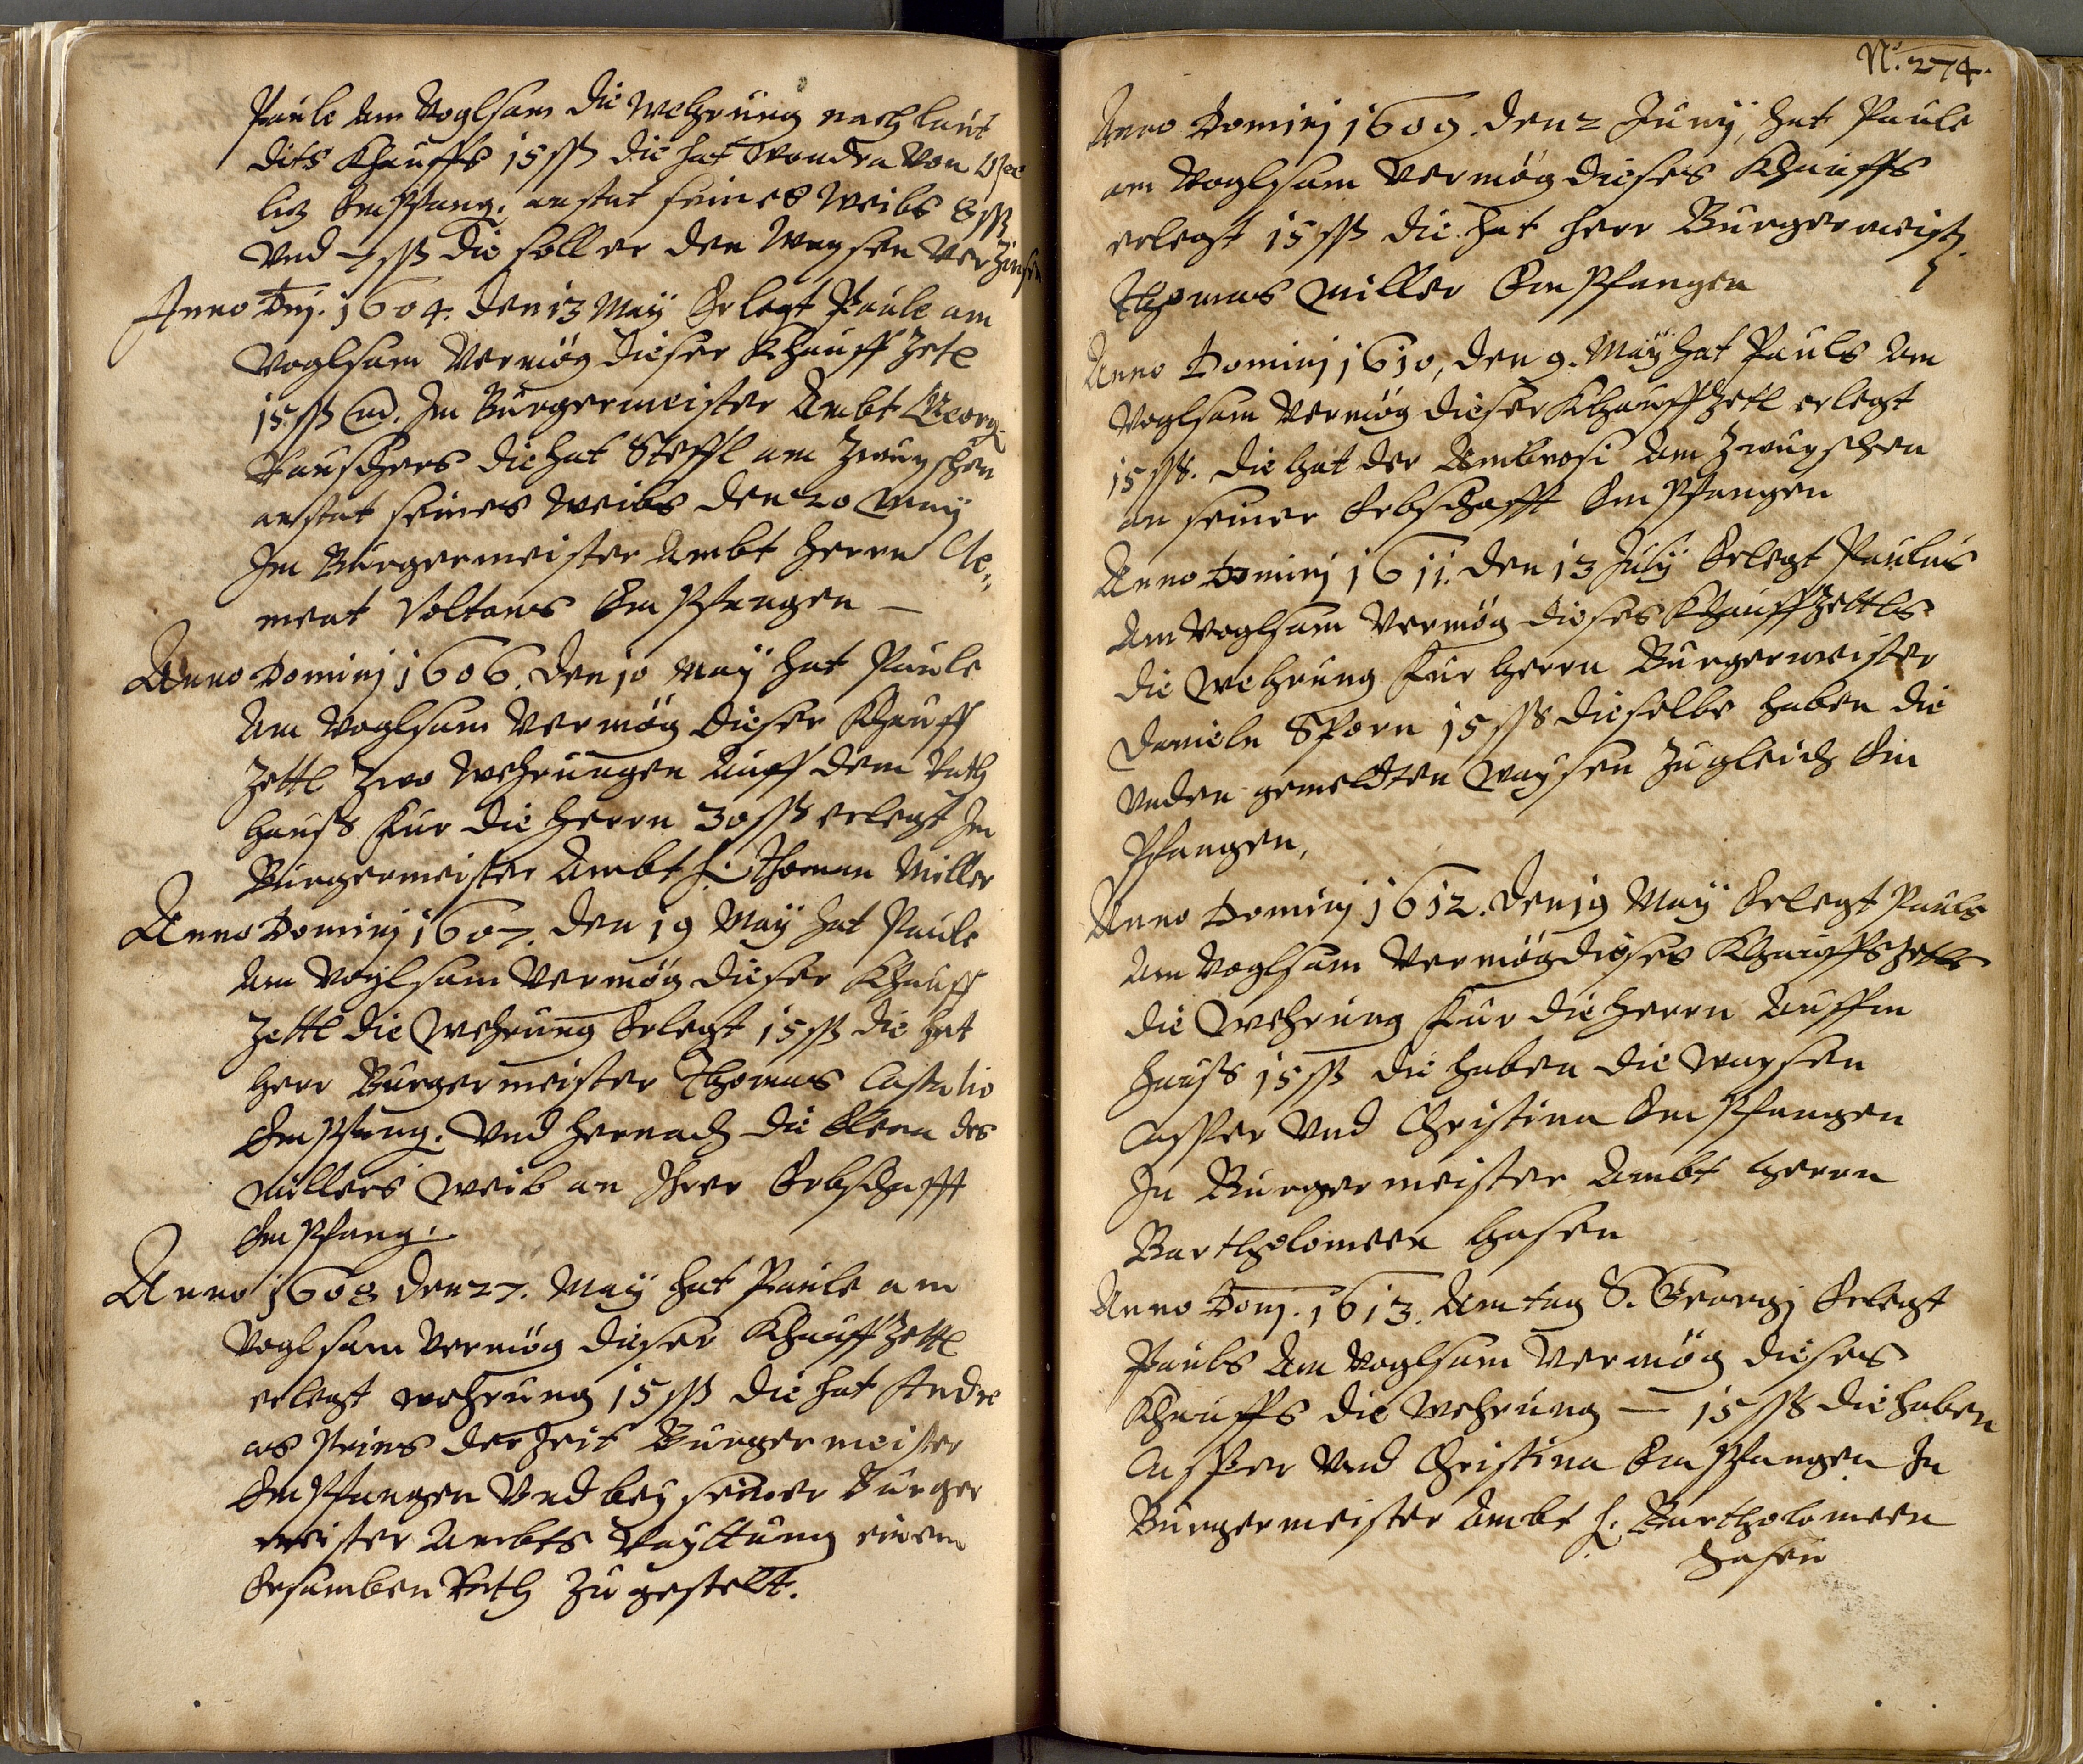 Paule am Voglsam die Wehrung nach laut
dits Khauffs 15 ßß die hat Wondra von
litz Empfang: anstat seines Weibs 8 ßß
Vnd 7 ßß die soll er den Waysen Verzinsen
Anno Dnj. 1604. den 13 May Erlegt Paule am
Voglsam Vermög dieser Khauff Zetl
15 ßß Im Burgermeister Ambt Georg
die hat Steffl am Zwuschen
anstat seines Weibs den 20 May
Im Burgermeister Ambt Herrn Cle=
ment Voltans Empfangen –
Anno Dominj 1606. den 10 May hat Paule
Am Voglsam Vermög dieser Khauff
Zettl Zwo Wehrungen Auff dem Rath
hauß Fur die Herrn 30 ßß erlegt Im
Burgermeister Ambt H: Thoman Miller
Anno Dominj 1607. den 19 May hat Paule
Am Voglsam Vermög dieser Khauff
Zettl die Wehrung Erlegt 15 ßß die hat
Herr Burgermeister Thomas
Empfang: Vnd hernach die des
Millers Weib an Ihrer Erbschafft
Empfang:
Anno 1608 den 27. May hat Paule am
Voglsam Vermög dieser Khauff Zettl
erlegt Wehrung 15 ßß die hat Andre
as der Zeit Burgermeister
Empfangen Vnd bey seiner Burger
meister Ambts Rayttung einem
Ersamben Rath Zu gestelt.
N: 274.
Anno Dominj 1609. den 2 Junij, hat Paule
am Voglsam Vermög dieses Khauffs
erlegt 15 ßß die hat Herr Burgermeist
Thomas Miller Empfangen
Anno Dominj 1610, den 9. May hat Pauls Am
Voglsam Vermög dieser Khauff Zetl erlegt
15 ßß. die hat der Ambrosi Am Zwuschen
an seiner Erbschafft Empfangen
Anno Dominj 1611. den 13 July Erlegt Paulus
Am Voglsam Vermög dieses Khauff Zettls
die Wehrung Fur Herrn Burgermeister
Daniele Sporn 15 ßß dieselbe haben die
Vnden gemeldten Waysen Zugleich Em
Pfangen,
Anno Dominj 1612. den 19 May Erlegt Pauls
Am Voglsam Vermög dises Khauffs Zetls
die Wehrung Fur die Herrn Auffm
Hauß 15 ßß die haben die Waysen
Casper Vnd Christina Empfangen
In Burgermeister Ambt Herrn
Bartholomeen Hasen
Anno Domj. 1613. Am tag S. Georgj Erlegt
Pauls Am Voglsam Vermög dieses
Khauffs die Wehrung – 15 ßß die haben
Casper Vnd Christina Empfangen In
Burgermeister Ambt H: Bartholomeen
Hasen